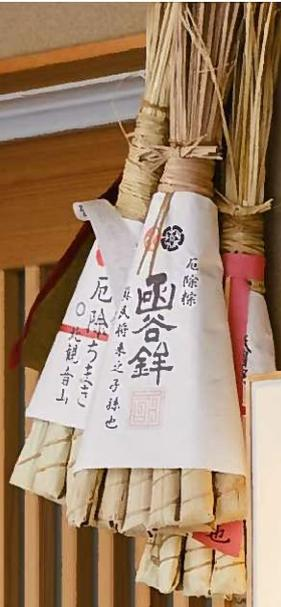 厄除粽
函谷鉾
蘇民将来之子孫也
厄除ちまき
北観音山
也